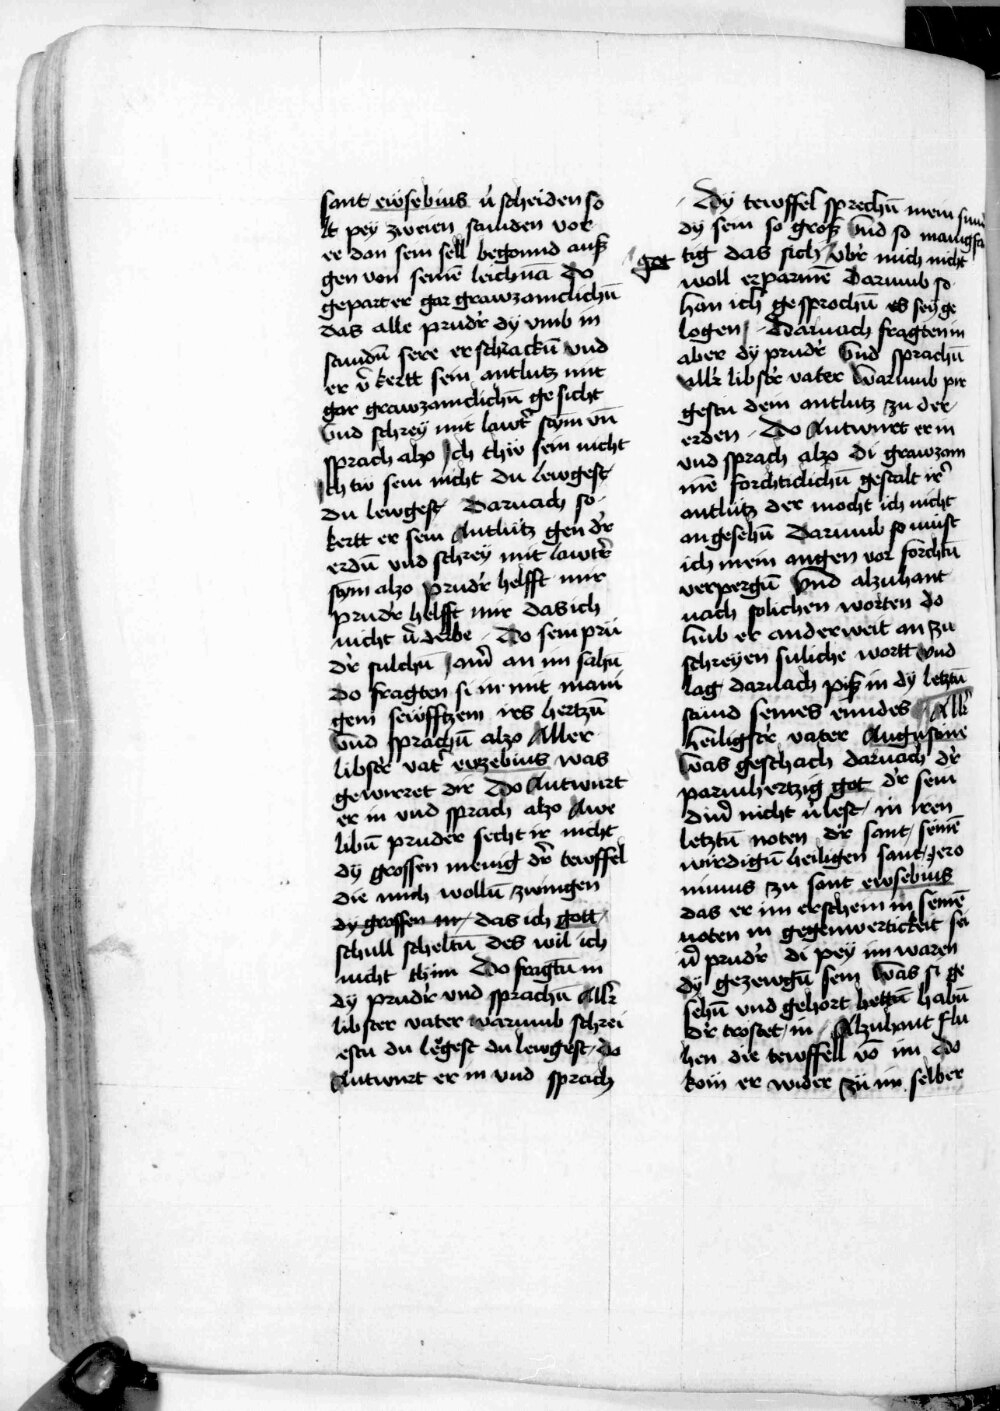 sant ewsebius v̉scheiden so
lt pey zweien stunden vor
ee dan sein sell begonnd auß
gen von seinē leichnā Do
gepart er gar grawzamclichn̄
das alle prudr̉ dy vmb in
stundn̄ sere erschrackn̄ vnd
er v̉kertt sein antlutz mit
gar grawzamclichn̄ gesicht
Vnd schrey mit lawtr̉ stym vn̄
sprach alzo Ich thw sein nicht
Ich tw sein nicht du lewgest
du lewgest Darnach so
kertt er sein Antlutz gen dr̉
erdn̄ vnd schrey mit lawtr̉
stym alzo prudr̉ helfft mir
prudr̉ helfft mir das ich
nicht v̉derbe Do sein prü
dr̉ sulchn̄ an im sahn̄
do fragten si in mit mani
gem sewfftzem irs hertzn̄
Vnd sprachn̄ alzo Aller
libstr̉ vatr̉ ewzebius was
gewirret dir Do Antwurt
er in vnd sprach alzo Awe
libn̄ pruder secht ir nicht
dy grossen menig dr̉ tewffel
die mich wolln̄ zwingen
dy grossen m das ich gott
schull scheltn̄ des wil ich
nicht thun Do fragtn̄ in
dy prudr̉ vnd sprachn̄ Allr̉
libster vater warumb schrei
estu du legest du lewgest do
Antwurt er in vnd sprach
Dy tewffel sprechn̄ mein sund
dy sein so groß vnd so manigfa
got tig das sich vbr̉ mich nicht
woll erparmē Darumb so
han ich gesprochn̄ es sey ge
logen Darnach fragten in
aber dy prudr̉ Vnd sprachn̄
Allr̉ libstr̉ vater Warumb pir
gestu dein antlutz zu der
erden Do Antwurt er in
vnd sprach alzo di grawzam
mē forchticlichn̄ gestalt irr̉
antlutz der mocht ich nicht
angesehn̄ Darumb so must
ich mein augen vor forchtn̄
verpergn̄ Vnd alzuhant
nach solichen worten do
hub er anderweit an zu
schreyen suliche wortt vnd
lag darnach piß in dy letztn̄
stund seines enndes Allr̉
heiligstr̉ vater Augustine
Was geschach darnach dr̉
parmhertzig got dr̉ sein
din̉ nicht v̉lest in iren
letztn̄ noten dr̉ sant seinē
wirdign̄ heiligen sant Jero
nimus zu sant ewsebius
das er im erschein in seinē
noten in gegenwertickeit sei
n̉ prudr̉ di pey im waren
dy gezewgn̄ sein was si ge
sehn̄ vnd gehort hettn̄ habn̄
dr̉ trostet in Alzuhant flu
hen die tewffell vō im Do
kom er wider zu im selber